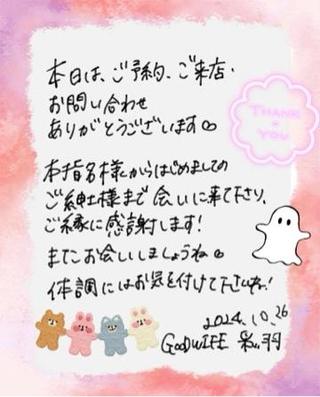 本日は、ご予約、ご来店・
お問い合わせ
ありがとうございます♡
THANK
YOU
本指名様からはじめましての
ご紳士様まで会いに来て下さり、
ご縁に感謝します!
またお会いしましょうね♡
体調にはお気を付けて下さいね!
2024.10.26
GOODWIFE 羽